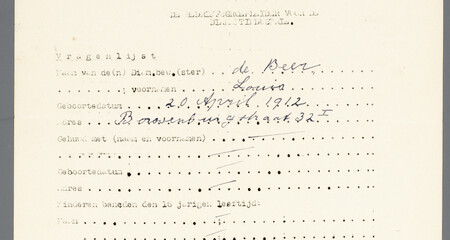 DIENSTTIJDSTEL.
Vragenlijst
Naam van de(n) Dien.beu.(ster) ..... de Beer,
; voornamen ..... Louis
Geboortedatum .... 20 April 1912
Adres ... straat 32 I
Gehuwd met (naam en voornamen) .....
Geboortedatum .....
Adres .....
Kinderen beneden den 16 jarigen leeftijd:
Naam .....